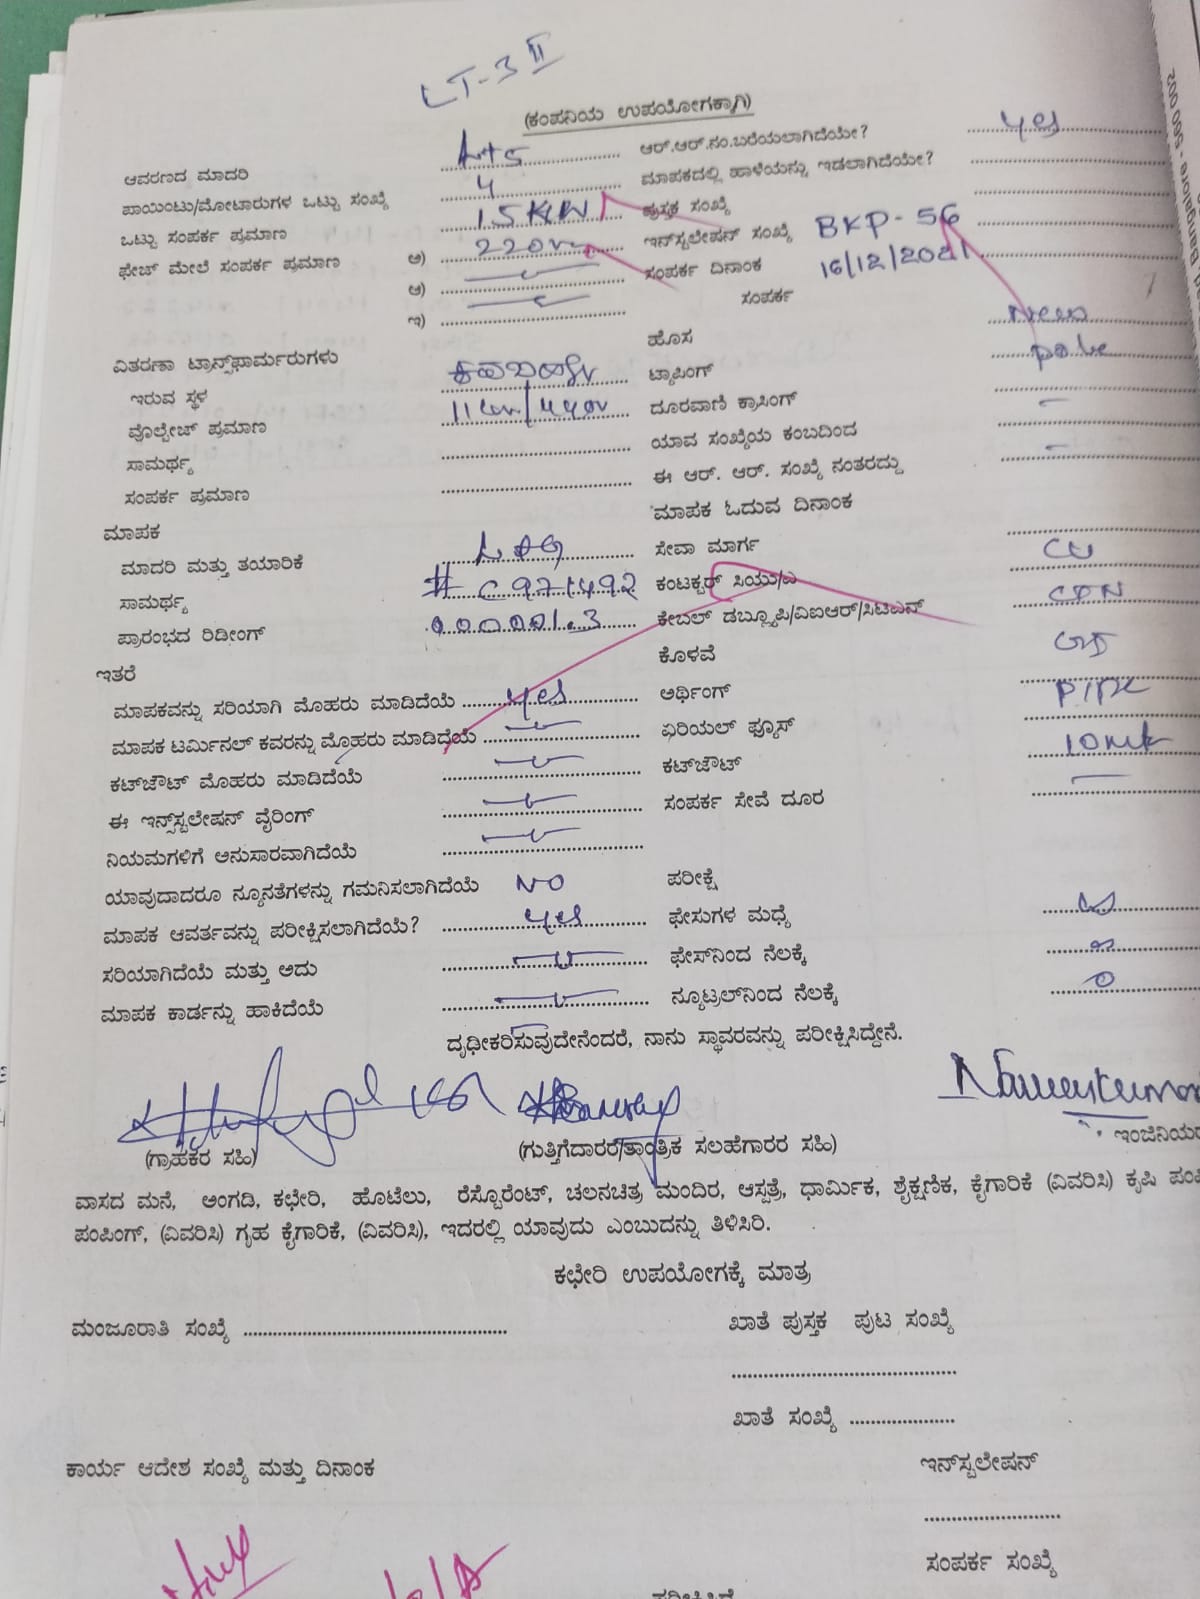 LT-3 II
(ಕಂಪನಿಯ ಉಪಯೋಗಕ್ಕಾಗಿ)
ಆವರಣದ ಮಾದರಿ ಆರ್.ಆರ್.ನಂ.ಬರೆಯಲಾಗಿದೆಯೇ? yes
ಪಾಯಿಂಟು/ಮೋಟಾರುಗಳ ಒಟ್ಟು ಸಂಖ್ಯೆ 4 ಮಾಪಕದಲ್ಲಿ ಹಾಳೆಯನ್ನು ಇಡಲಾಗಿದೆಯೇ?
ಒಟ್ಟು ಸಂಪರ್ಕ ಪ್ರಮಾಣ ಪುಸ್ತಕ ಸಂಖ್ಯೆ
ಫೇಜ್ ಮೇಲೆ ಸಂಪರ್ಕ ಪ್ರಮಾಣ ಅ) 220v ಇನ್‌ಸ್ಟಲೇಷನ್ ಸಂಖ್ಯೆ BKP-56
ಆ) ಸಂಪರ್ಕ ದಿನಾಂಕ 16/12/2021
ಇ) ಸಂಪರ್ಕ
ವಿತರಣಾ ಟ್ರಾನ್ಸ್‌ಫಾರ್ಮರುಗಳು ಹೊಸ New
ಇರುವ ಸ್ಥಳ ಟ್ಯಾಪಿಂಗ್ pole
ವೊಲ್ಟೇಜ್ ಪ್ರಮಾಣ 11kv/440v ದೂರವಾಣಿ ಕ್ರಾಸಿಂಗ್
ಸಾಮರ್ಥ್ಯ ಯಾವ ಸಂಖ್ಯೆಯ ಕಂಬದಿಂದ
ಸಂಪರ್ಕ ಪ್ರಮಾಣ ಈ ಆರ್. ಆರ್. ಸಂಖ್ಯೆ ನಂತರದ್ದು
ಮಾಪಕ ಮಾಪಕ ಓದುವ ದಿನಾಂಕ
ಮಾದರಿ ಮತ್ತು ತಯಾರಿಕೆ ಸೇವಾ ಮಾರ್ಗ
ಸಾಮರ್ಥ್ಯ # C971492 ಕಂಟಕ್ಟರ್ ಸಿಯು/ಎ CU
ಪ್ರಾರಂಭದ ರಿಡೀಂಗ್ 000001.3 ಕೇಬಲ್ ಡಬ್ಲ್ಯೂಪಿ/ವಿಐಆರ್/ಸಿಟಿಎನ್
ಇತರೆ ಕೊಳವೆ
ಮಾಪಕವನ್ನು ಸರಿಯಾಗಿ ಮೊಹರು ಮಾಡಿದೆಯೆ yes ಅರ್ಥಿಂಗ್ PIPE
ಮಾಪಕ ಟರ್ಮಿನಲ್ ಕವರನ್ನು ಮೊಹರು ಮಾಡಿದೆಯೆ ಏರಿಯಲ್ ಫ್ಯೂಸ್
ಕಟ್‌ಜೌಟ್ ಮೊಹರು ಮಾಡಿದೆಯೆ ಕಟ್‌ಜೌಟ್
ಈ ಇನ್ಸ್‌ಸ್ಟಲೇಷನ್ ವೈರಿಂಗ್ ಸಂಪರ್ಕ ಸೇವೆ ದೂರ
ನಿಯಮಗಳಿಗೆ ಅನುಸಾರವಾಗಿದೆಯೆ
ಯಾವುದಾದರೂ ನ್ಯೂನತೆಗಳನ್ನು ಗಮನಿಸಲಾಗಿದೆಯೆ NO ಪರೀಕ್ಷೆ
ಮಾಪಕ ಆವರ್ತವನ್ನು ಪರೀಕ್ಷಿಸಲಾಗಿದೆಯೆ? yes ಫೇಸುಗಳ ಮಧ್ಯೆ
ಸರಿಯಾಗಿದೆಯೆ ಮತ್ತು ಅದು ಫೇಸ್‌ನಿಂದ ನೆಲಕ್ಕೆ
ಮಾಪಕ ಕಾರ್ಡನ್ನು ಹಾಕಿದೆಯೆ ನ್ಯೂಟ್ರಲ್‌ನಿಂದ ನೆಲಕ್ಕೆ
ದೃಢೀಕರಿಸುವುದೇನೆಂದರೆ, ನಾನು ಸ್ಥಾವರವನ್ನು ಪರೀಕ್ಷಿಸಿದ್ದೇನೆ.
(ಗ್ರಾಹಕರ ಸಹಿ) (ಗುತ್ತಿಗೆದಾರರ/ತಾಂತ್ರಿಕ ಸಲಹೆಗಾರರ ಸಹಿ)
ವಾಸದ ಮನೆ, ಅಂಗಡಿ, ಕಛೇರಿ, ಹೊಟೆಲು, ರೆಸ್ಟೊರೆಂಟ್, ಚಲನಚಿತ್ರ ಮಂದಿರ, ಆಸ್ಪತ್ರೆ, ಧಾರ್ಮಿಕ, ಶೈಕ್ಷಣಿಕ, ಕೈಗಾರಿಕೆ (ವಿವರಿಸಿ) ಕೃಷಿ
ಪಂಪಿಂಗ್, (ವಿವರಿಸಿ) ಗೃಹ ಕೈಗಾರಿಕೆ, (ವಿವರಿಸಿ), ಇದರಲ್ಲಿ ಯಾವುದು ಎಂಬುದನ್ನು ತಿಳಿಸಿರಿ.
ಕಛೇರಿ ಉಪಯೋಗಕ್ಕೆ ಮಾತ್ರ
ಮಂಜೂರಾತಿ ಸಂಖ್ಯೆ ಖಾತೆ ಪುಸ್ತಕ ಪುಟ ಸಂಖ್ಯೆ
ಖಾತೆ ಸಂಖ್ಯೆ
ಕಾರ್ಯ ಆದೇಶ ಸಂಖ್ಯೆ ಮತ್ತು ದಿನಾಂಕ ಇನ್‌ಸ್ಟಲೇಷನ್
ಸಂಪರ್ಕ ಸಂಖ್ಯೆ